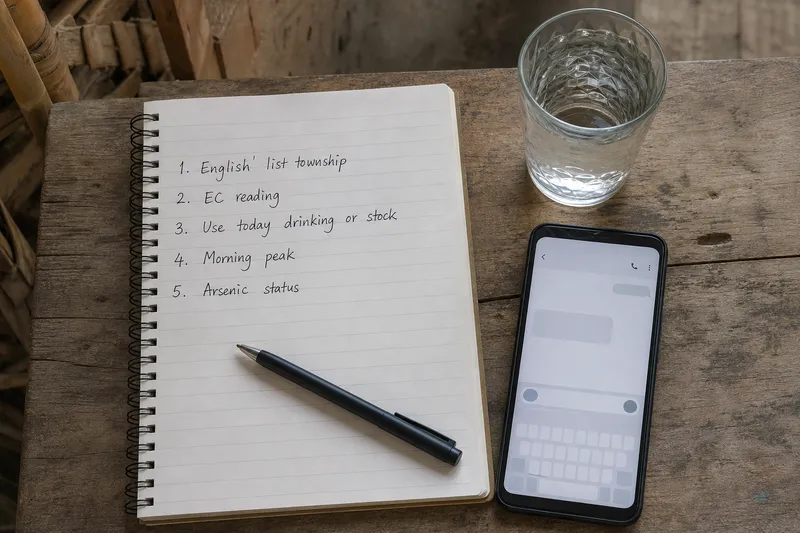 1. English' list township
2. EC reading
3. Use today drinking or stock
4. Morning peak
5. Arsenic status